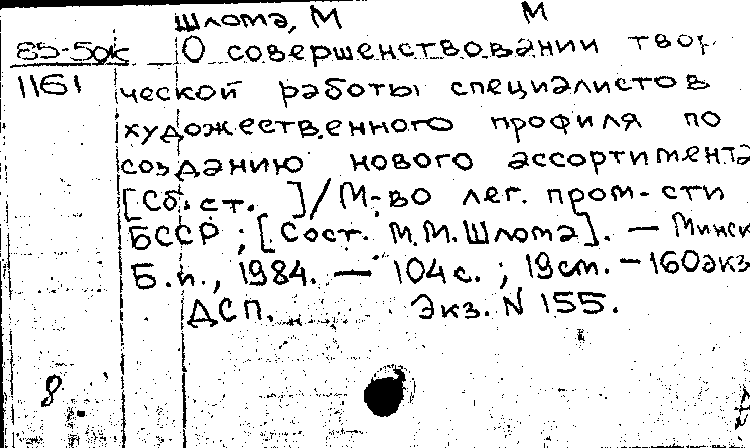 Шлома, М М
85-50к О совершенствовании твор-
1161 ческой работы специалистов
художественного профиля по
созданию нового ассортимента
[Сб. ст. ]/М-во лег. пром-сти
БССР ; [Сост. М.М. Шлома]. — Минск
Б.и., 1984. — 104 с. ; 19 см. — 160 экз
ДСП. Экз. N 155.
8